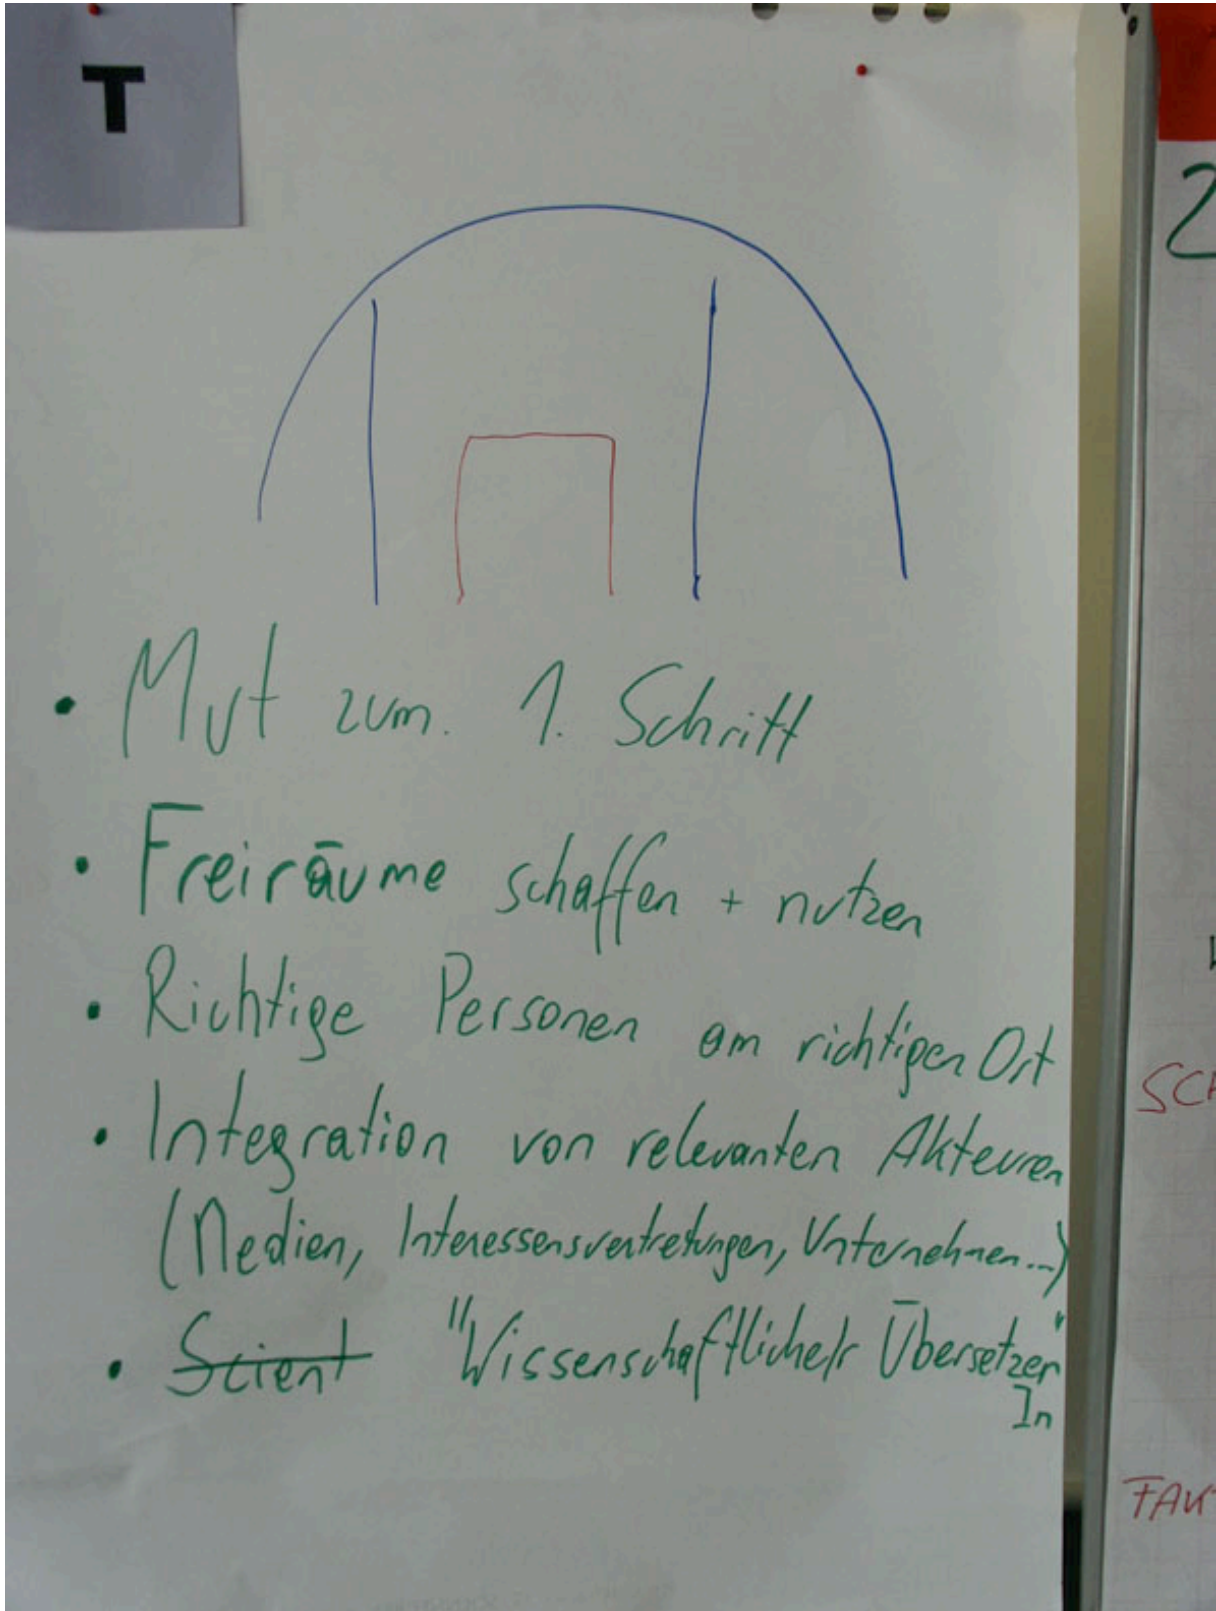 T
• Mut zum. 1. Schritt
• Freiräume schaffen + nutzen
• Richtige Personen am richtigen Ort
• Integration von relevanten Akteuren
(Medien, Interessensvertretungen, Unternehmen...)
• Scient "Wissenschaftliche/r Übersetzer"
In
2
SCH
FAKT